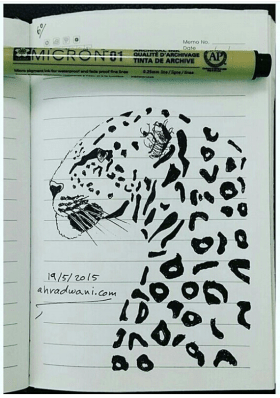 MICRON 01
QUALITÉ D'ARCHIVAGE
TINTA DE ARCHIVE
AP
Memo No.
Date
19/5/2015
ahradwani.com